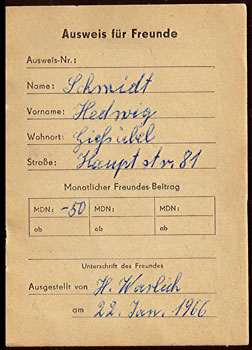 Ausweis für Freunde
Ausweis-Nr.:
Name: Schmidt
Vorname: Hedwig
Wohnort: Gießübel
Straße: Hauptstr. 81
Monatlicher Freundes-Beitrag
MDN: -50 MDN: MDN:
ab ab ab
Unterschrift des Freundes
Ausgestellt von H. Warlich
am 22. Jan. 1966